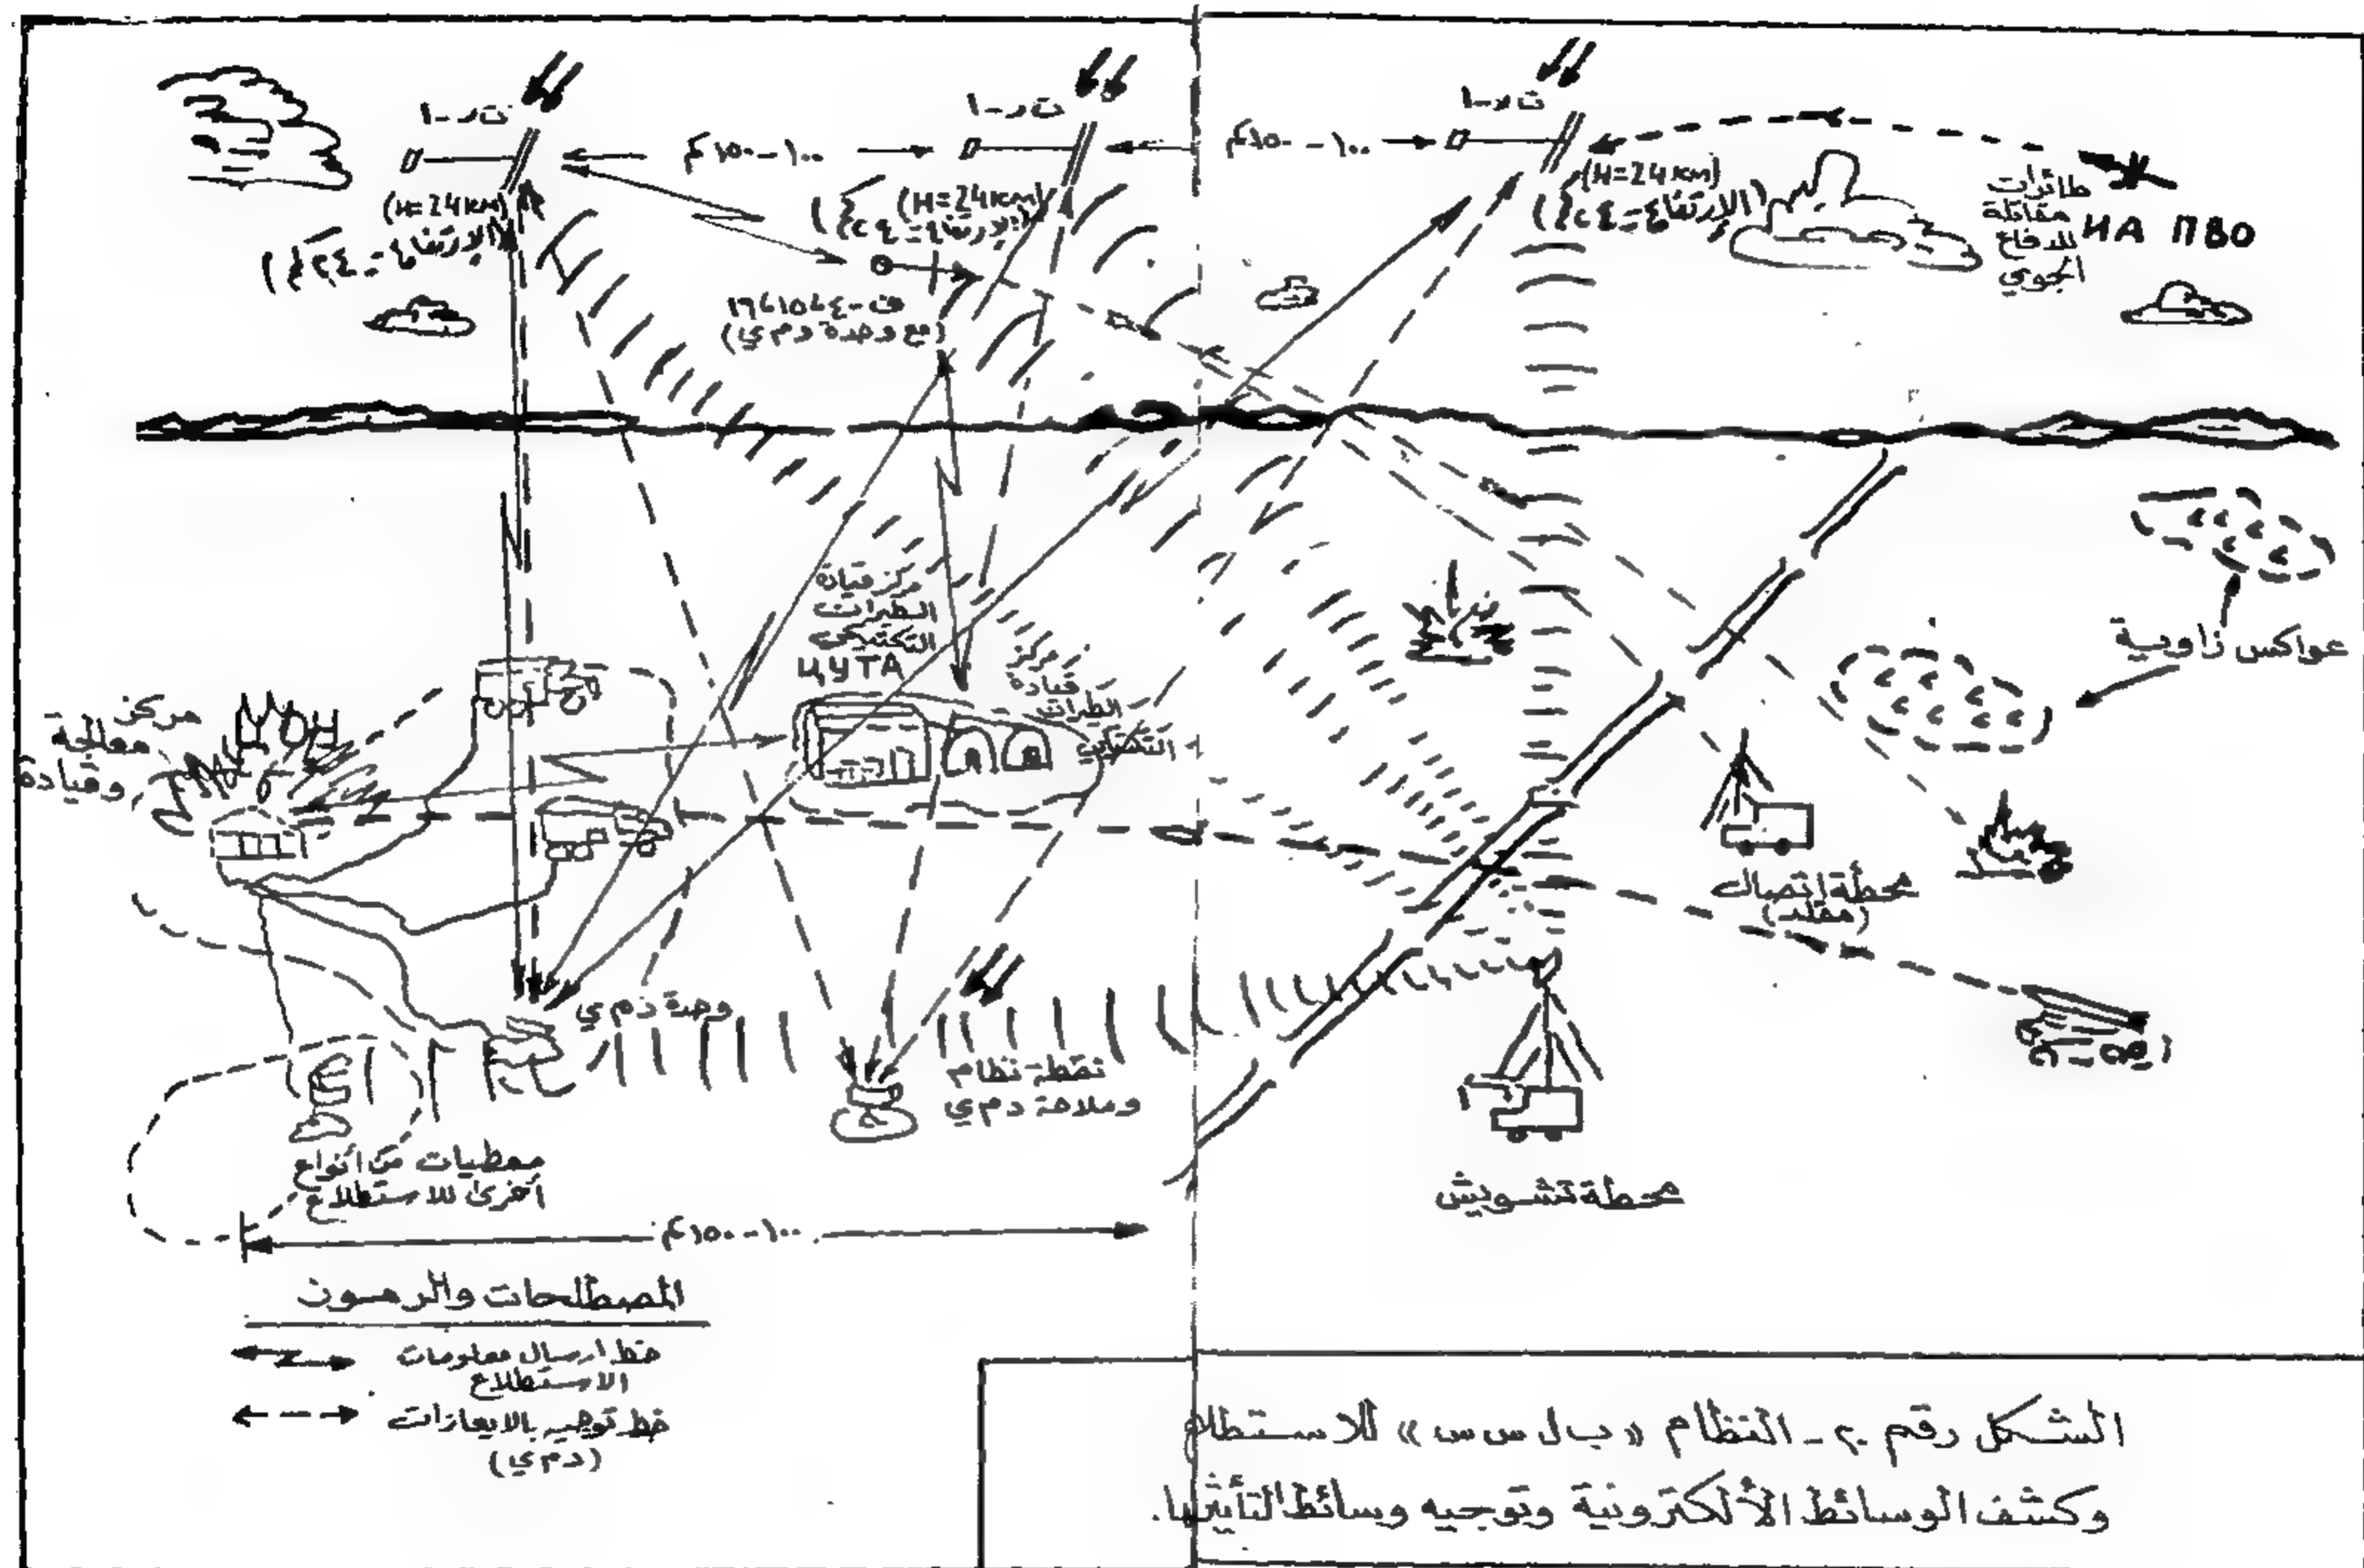 ت ر-١
ت ر-١
ت ر-١
١٠٠-١٥٠كم
١٠٠-١٥٠كم
(H=24KM)
(الإرتفاع=٢٤كم)
(H=24KM)
(الإرتفاع=٢٤كم)
(H=24KM)
(الإرتفاع=٢٤كم)
طائرات
مقاتلة
للدفاع
الجوي
ИА ПВО
(مع وحدة دم ي)
مركز قيادة
الطيران
التكتيكي
ЦУТА
مركز
قيادة
الطيران
التكتيكي
مركز
معالجة
وقيادة
عواكس زاوية
محطة اتصال
(مقلد)
وحدة دم ي
نقطة نظام
وملاحة دم ي
معطيات من أنواع
أخرى للاستطلاع
محطة تشويش
١٠٠-١٥٠كم
المصطلحات والرموز
خط ارسال معلومات
الاستطلاع
خط توجيه بالايعازات
(دم ي)
الشكل رقم ٢- النظام «ب ل س س» للاستطلاع
وكشف الوسائط الألكترونية وتوجيه وسائط التأثير لها.